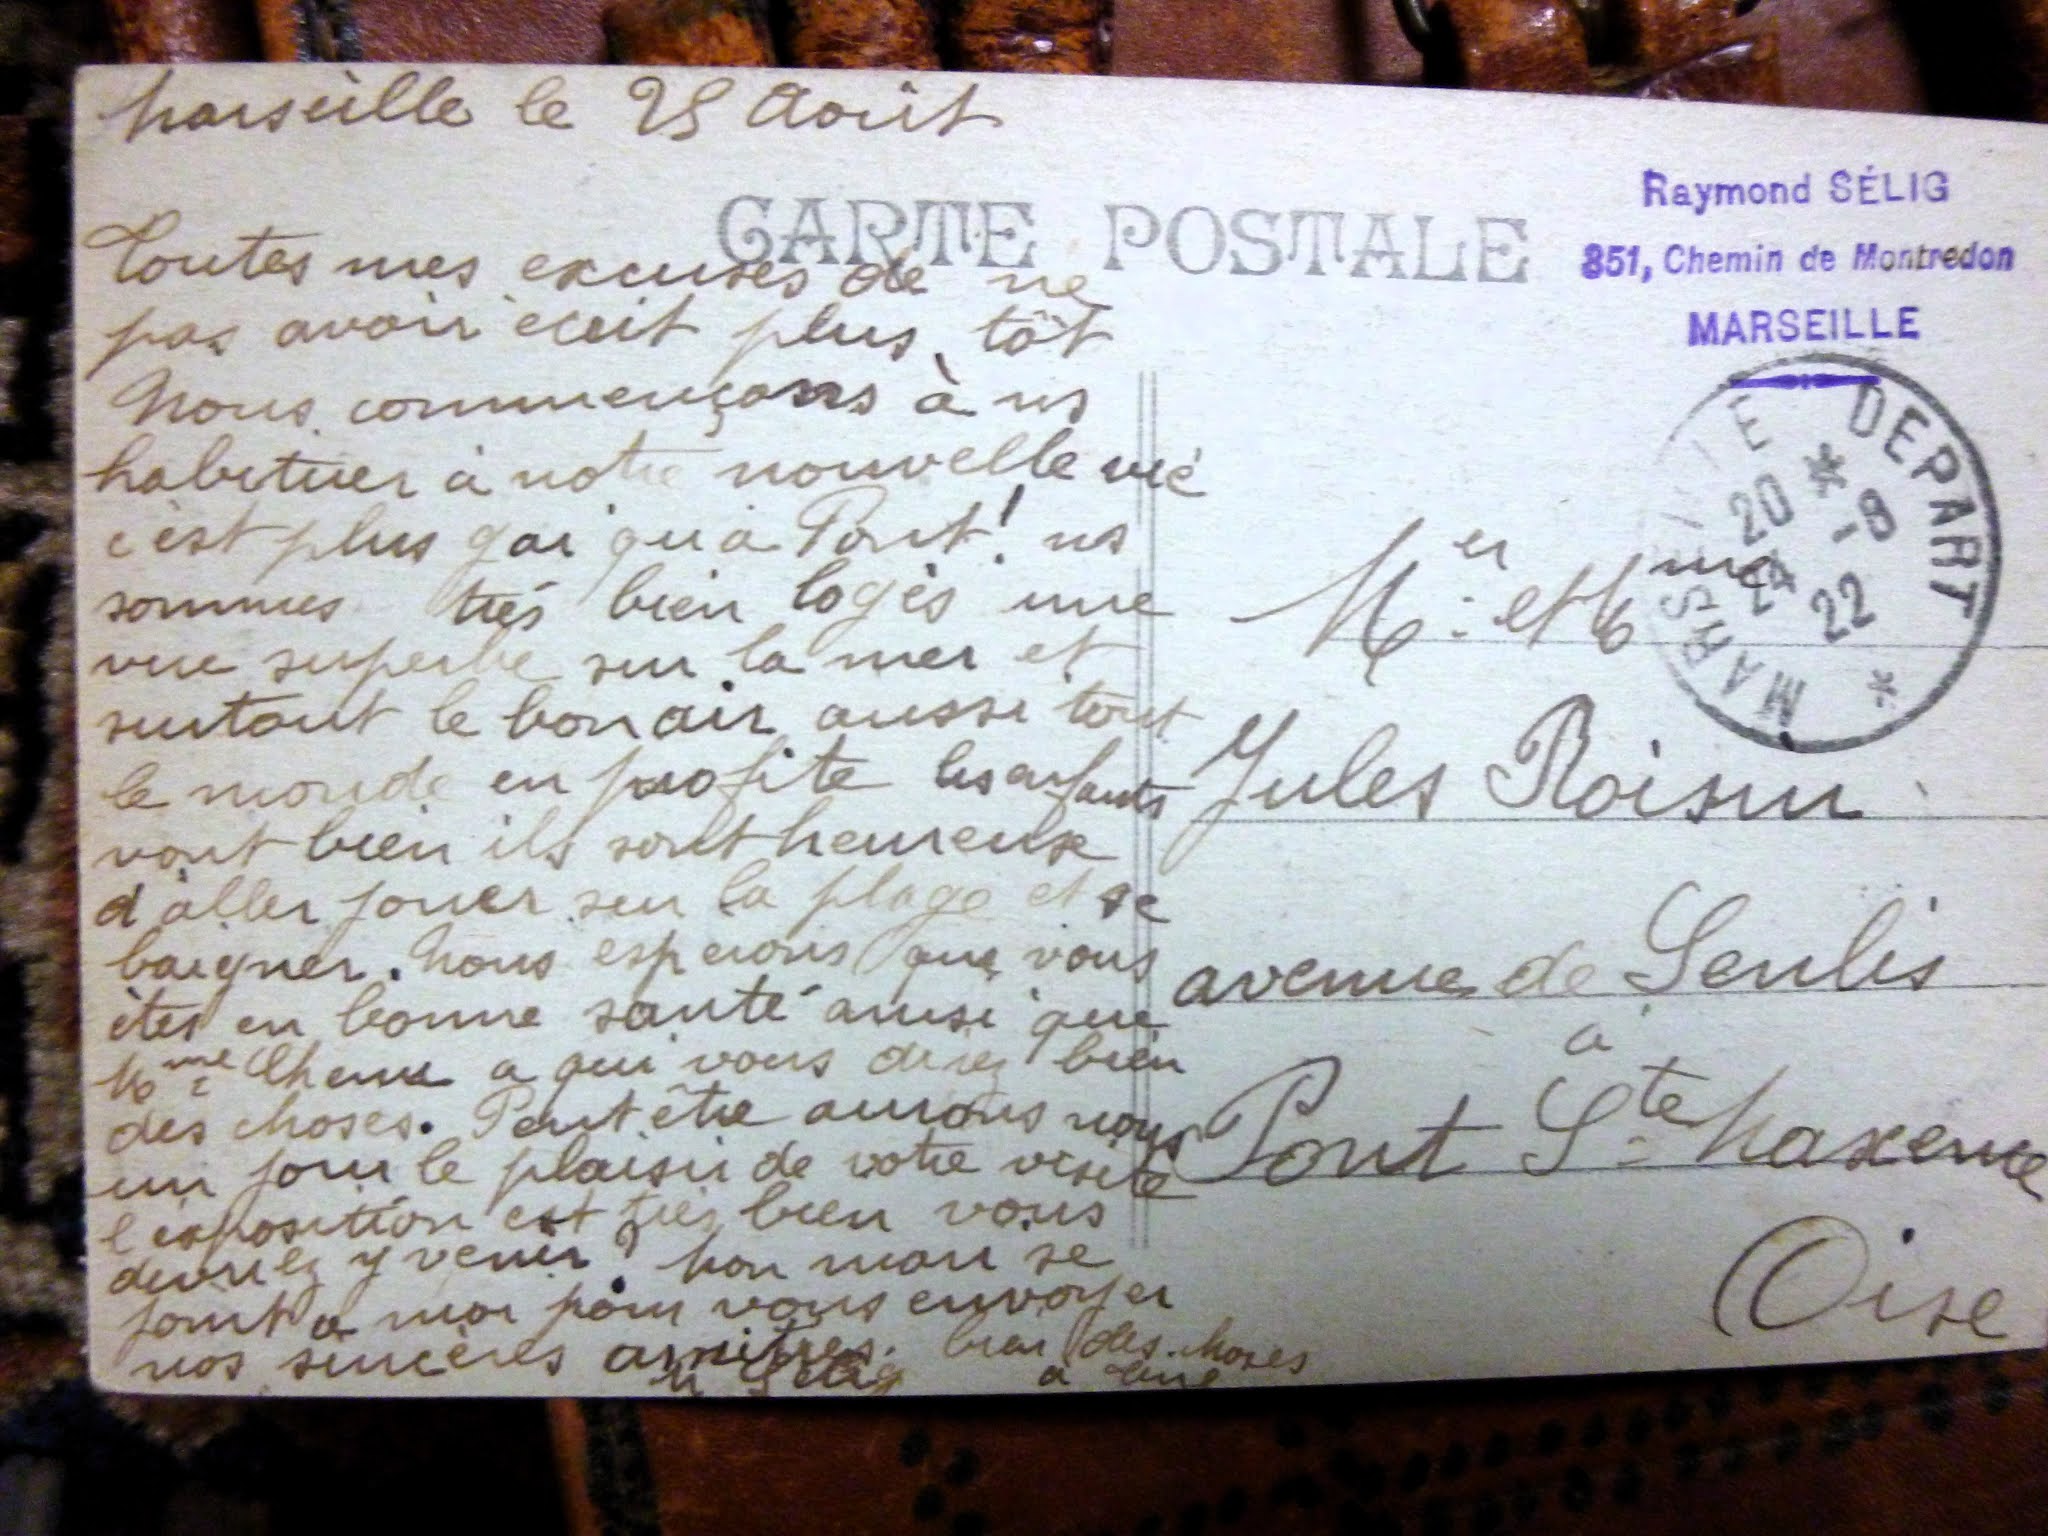 Marseille le 25 Août
CARTE POSTALE
Toutes mes excuses de ne
pas avoir écrit plus tôt
Nous commençons à ns
habituer à notre nouvelle vie
c'est plus gai qu'à Pont! ns
sommes très bien logés une
vue superbe sur la mer et
surtout le bon air aussi tout
le monde en profite les enfants
vont bien ils sont heureux
d'aller jouer sur la plage et se
baigner. Nous espérons que vous
êtes en bonne santé ainsi que
Mme a qui vous direz bien
des choses. Peut être aurons nous
un jour le plaisir de votre visite
l'exposition est très bien vous
devriez y venir? Mon mari se
joint a moi pour vous envoyer
nos sincères amitiés. bien des choses
Sélig à
Raymond SÉLIG
351, Chemin de Montredon
MARSEILLE
MARSEILLE DEPART
20 * -8
22
*
Mer et Mme
Jules Roisin
avenue de Senlis
à
Pont Ste Maxence
Oise